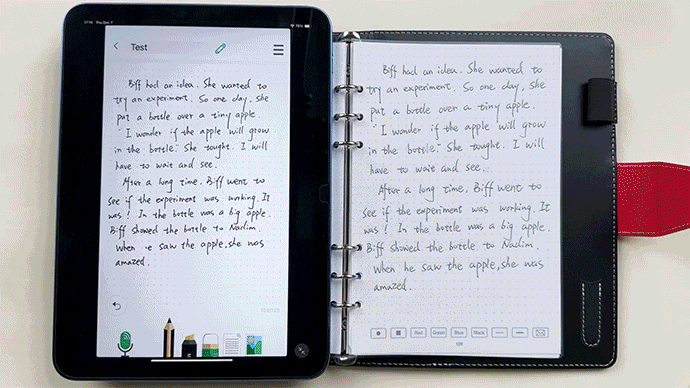 Thu Dec 7
Test
Biff had an idea. She wanted to
try an experiment. So one day, she
put a bottle over a tiny apple.
"I wonder if the apple will grow
in the bottle." She tought. I will
have to wait and see.
After a long time, Biff went to
see if the experiment was working. It
was! In the bottle was a big apple.
Biff showed the bottle to Nadim.
When he saw the apple, she was
amazed.
Biff had an idea. She wanted to
try an experiment. So one day, she
put a bottle over a tiny apple.
"I wonder if the apple will grow
in the bottle." She tought. I will
have to wait and see.
After a long time, Biff went to
see if the experiment was working. It
was! In the bottle was a big apple.
Biff showed the bottle to Nadim.
When he saw the apple, she was
amazed.
Red Green Blue Black